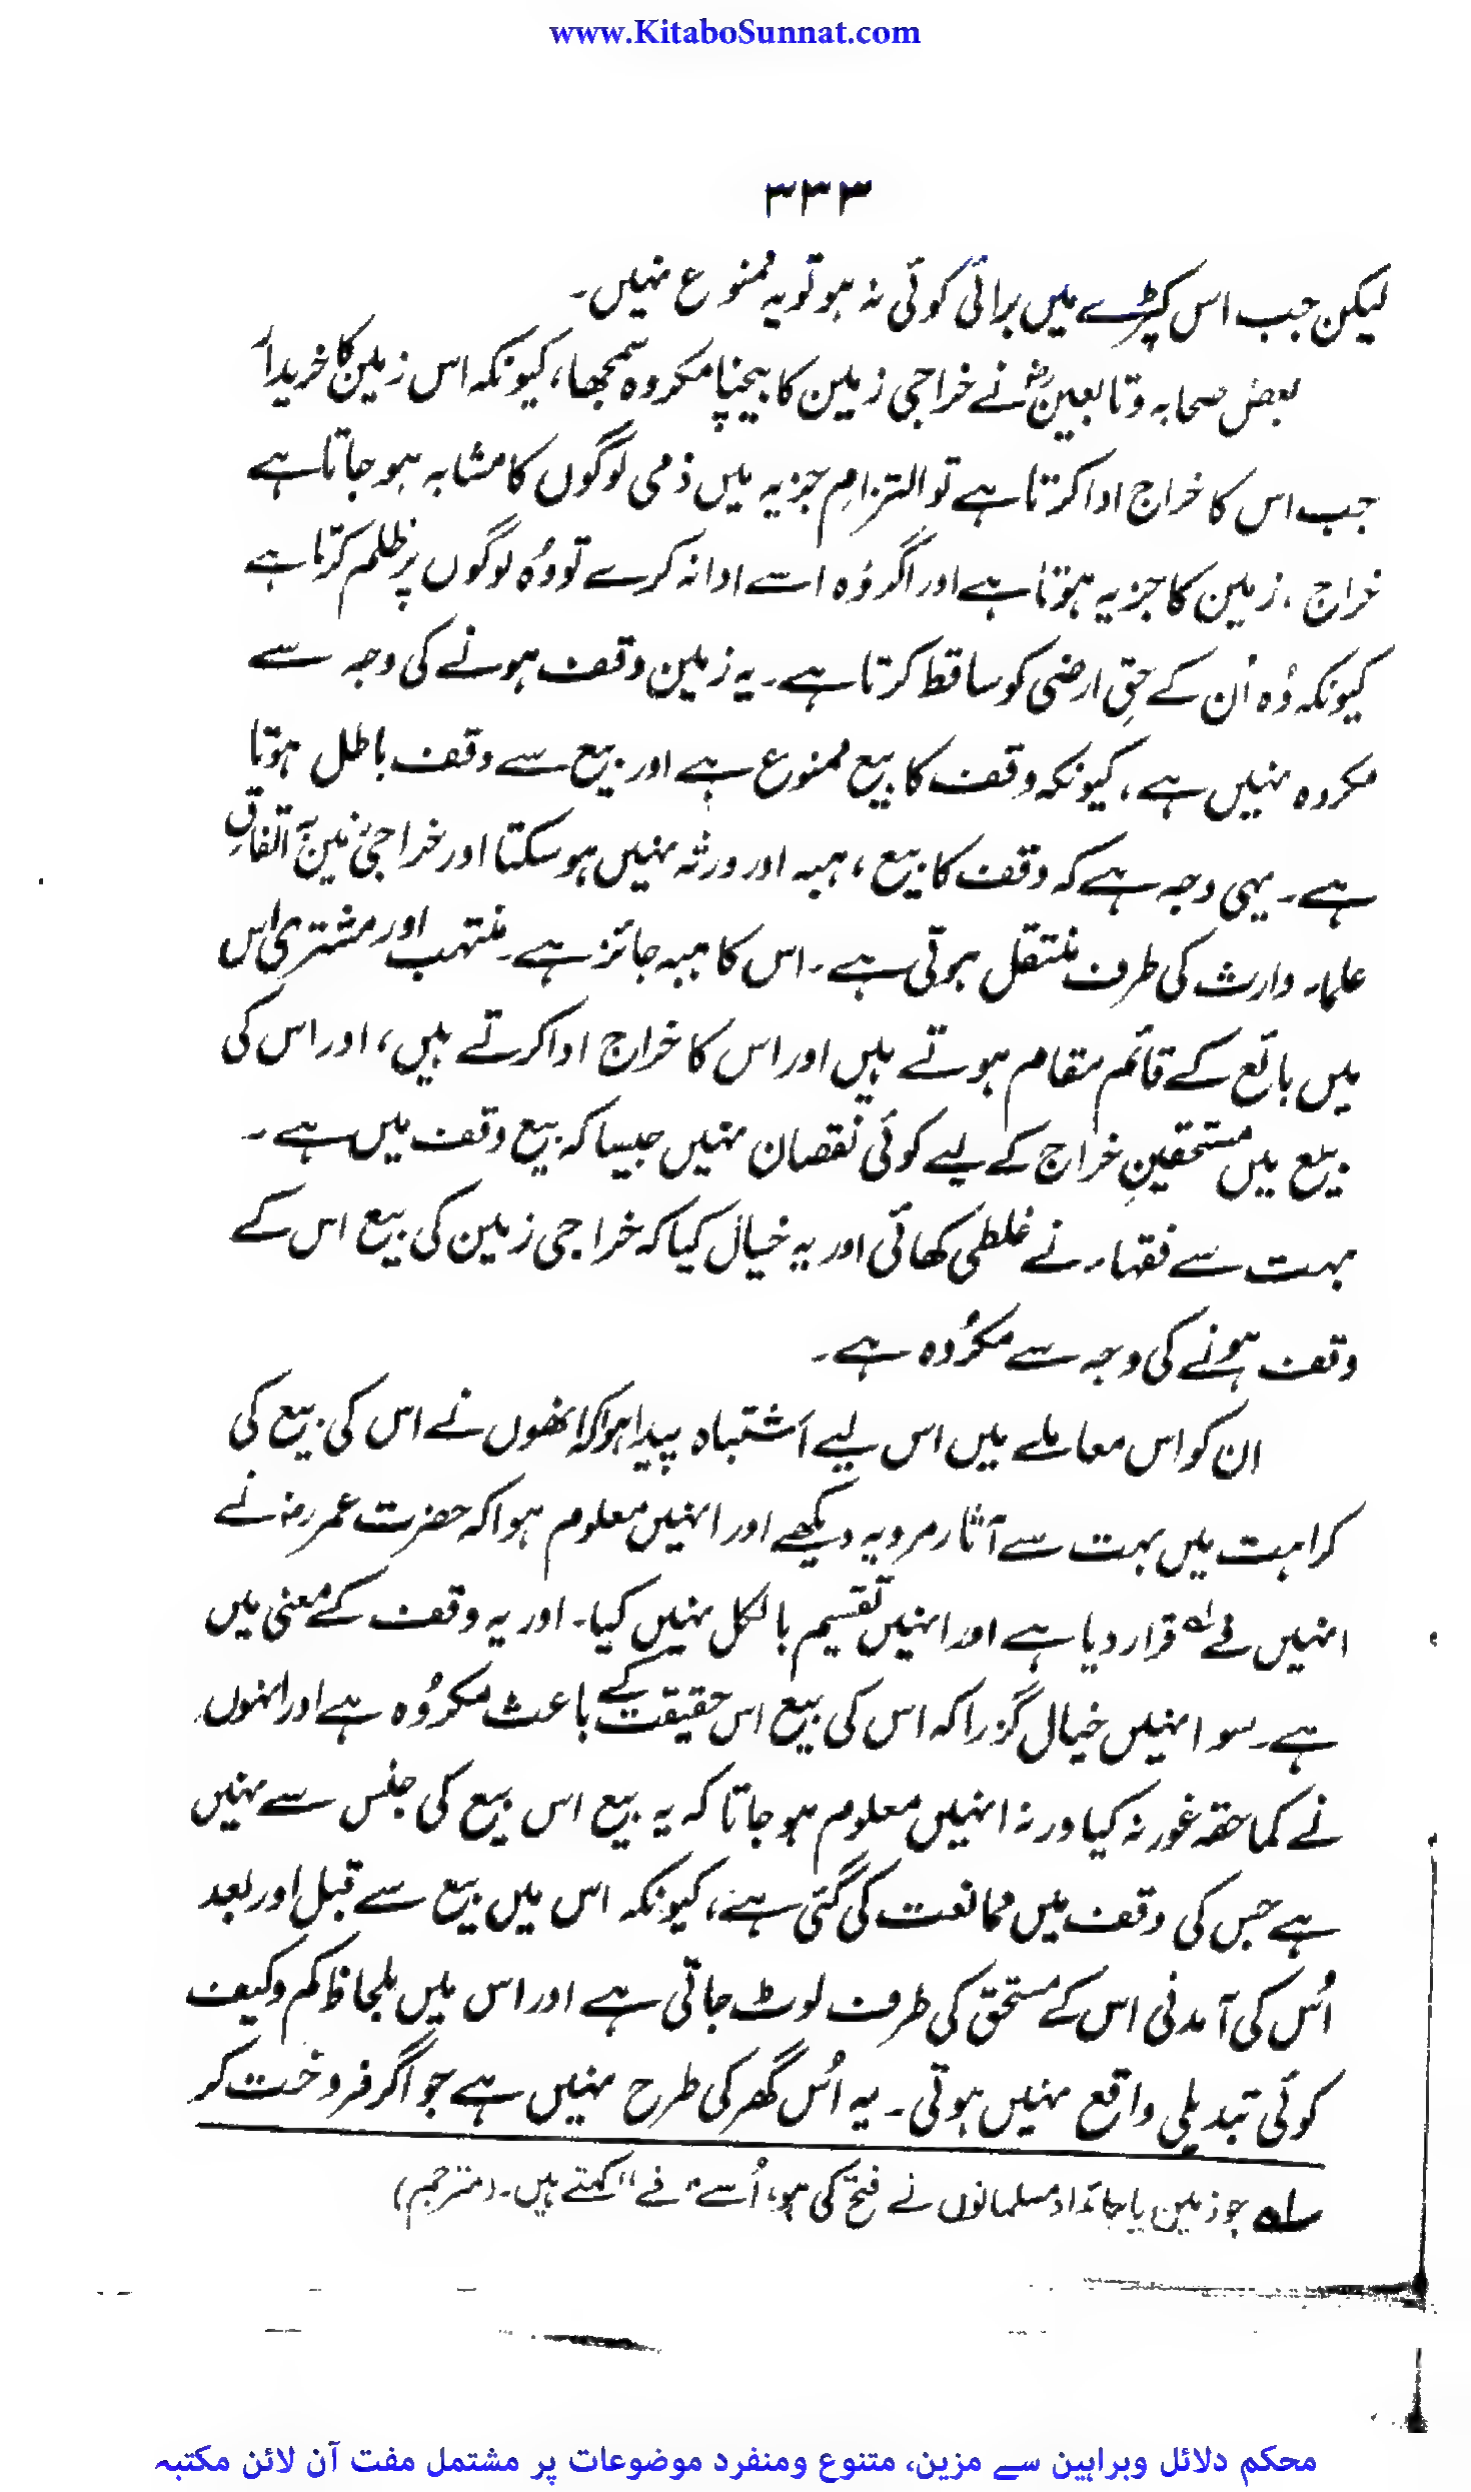 www.KitaboSunnat.com
۳۳۳
لیکن جب اس کپڑے میں برائی کوئی نہ ہو تو یہ ممنوع نہیں۔
بعض صحابہ و تابعینؓ نے خراجی زمین کا بیچنا مکروہ سمجھا، کیونکہ اس زمین کا خریدار
جب اس کا خراج ادا کرتا ہے تو التزامِ جزیہ میں ذمی لوگوں کا مشابہ ہو جاتا ہے
خراج، زمین کا جزیہ ہوتا ہے اور اگر وُہ اسے ادا نہ کرے تو وُہ لوگوں پر ظلم کرتا ہے
کیونکہ وُہ اُن کے حقِ ارضی کو ساقط کرتا ہے۔ یہ زمین وقف ہونے کی وجہ سے
مکروہ نہیں ہے، کیونکہ وقف کا بیع ممنوع ہے اور بیع سے وقف باطل ہوتا
ہے۔ یہی وجہ ہے کہ وقف کا بیع، ہبہ اور ورثہ نہیں ہو سکتا اور خراجی زمین بہ اتفاقِ
علماء وارث کی طرف منتقل ہوتی ہے۔ اس کا ہبہ جائز ہے۔ منتہب اور مشتری اس
میں بائع کے قائم مقام ہوتے ہیں اور اس کا خراج ادا کرتے ہیں، اور اس کی
بیع میں مستحقینِ خراج کے لیے کوئی نقصان نہیں جیسا کہ بیع وقف میں ہے۔
بہت سے فقہاء نے غلطی کھائی اور یہ خیال کیا کہ خراجی زمین کی بیع اس کے
وقف ہونے کی وجہ سے مکرُوہ ہے۔
ان کو اس معاملے میں اس لیے اشتباہ پیدا ہوا کہ انھوں نے اس کی بیع کی
کراہت میں بہت سے آثار مرویہ دیکھے اور انہیں معلوم ہوا کہ حضرت عمر رضہ نے
انہیں فے لہ قرار دیا ہے اور انہیں تقسیم بالکل نہیں کیا۔ اور یہ وقف کے معنی میں
ہے۔ سو انہیں خیال گزرا کہ اس کی بیع اس حقیقت کے باعث مکرُوہ ہے اور انہوں
نے کما حقہ غور نہ کیا ورنہ انہیں معلوم ہو جاتا کہ یہ بیع اس بیع کی جنس سے نہیں
ہے جس کی وقف میں ممانعت کی گئی ہے، کیونکہ اس میں بیع سے قبل اور بعد
اُس کی آمدنی اس کے مستحق کی طرف لوٹ جاتی ہے اور اس میں بلحاظ کم و کیف
کوئی تبدیلی واقع نہیں ہوتی۔ یہ اُس گھر کی طرح نہیں ہے جو اگر فروخت کر
لہ جو زمین یا جائداد مسلمانوں نے فتح کی ہو، اُسے "فے" کہتے ہیں۔ (مترجم)
محکم دلائل وبراہین سے مزین، متنوع ومنفرد موضوعات پر مشتمل مفت آن لائن مکتبہ